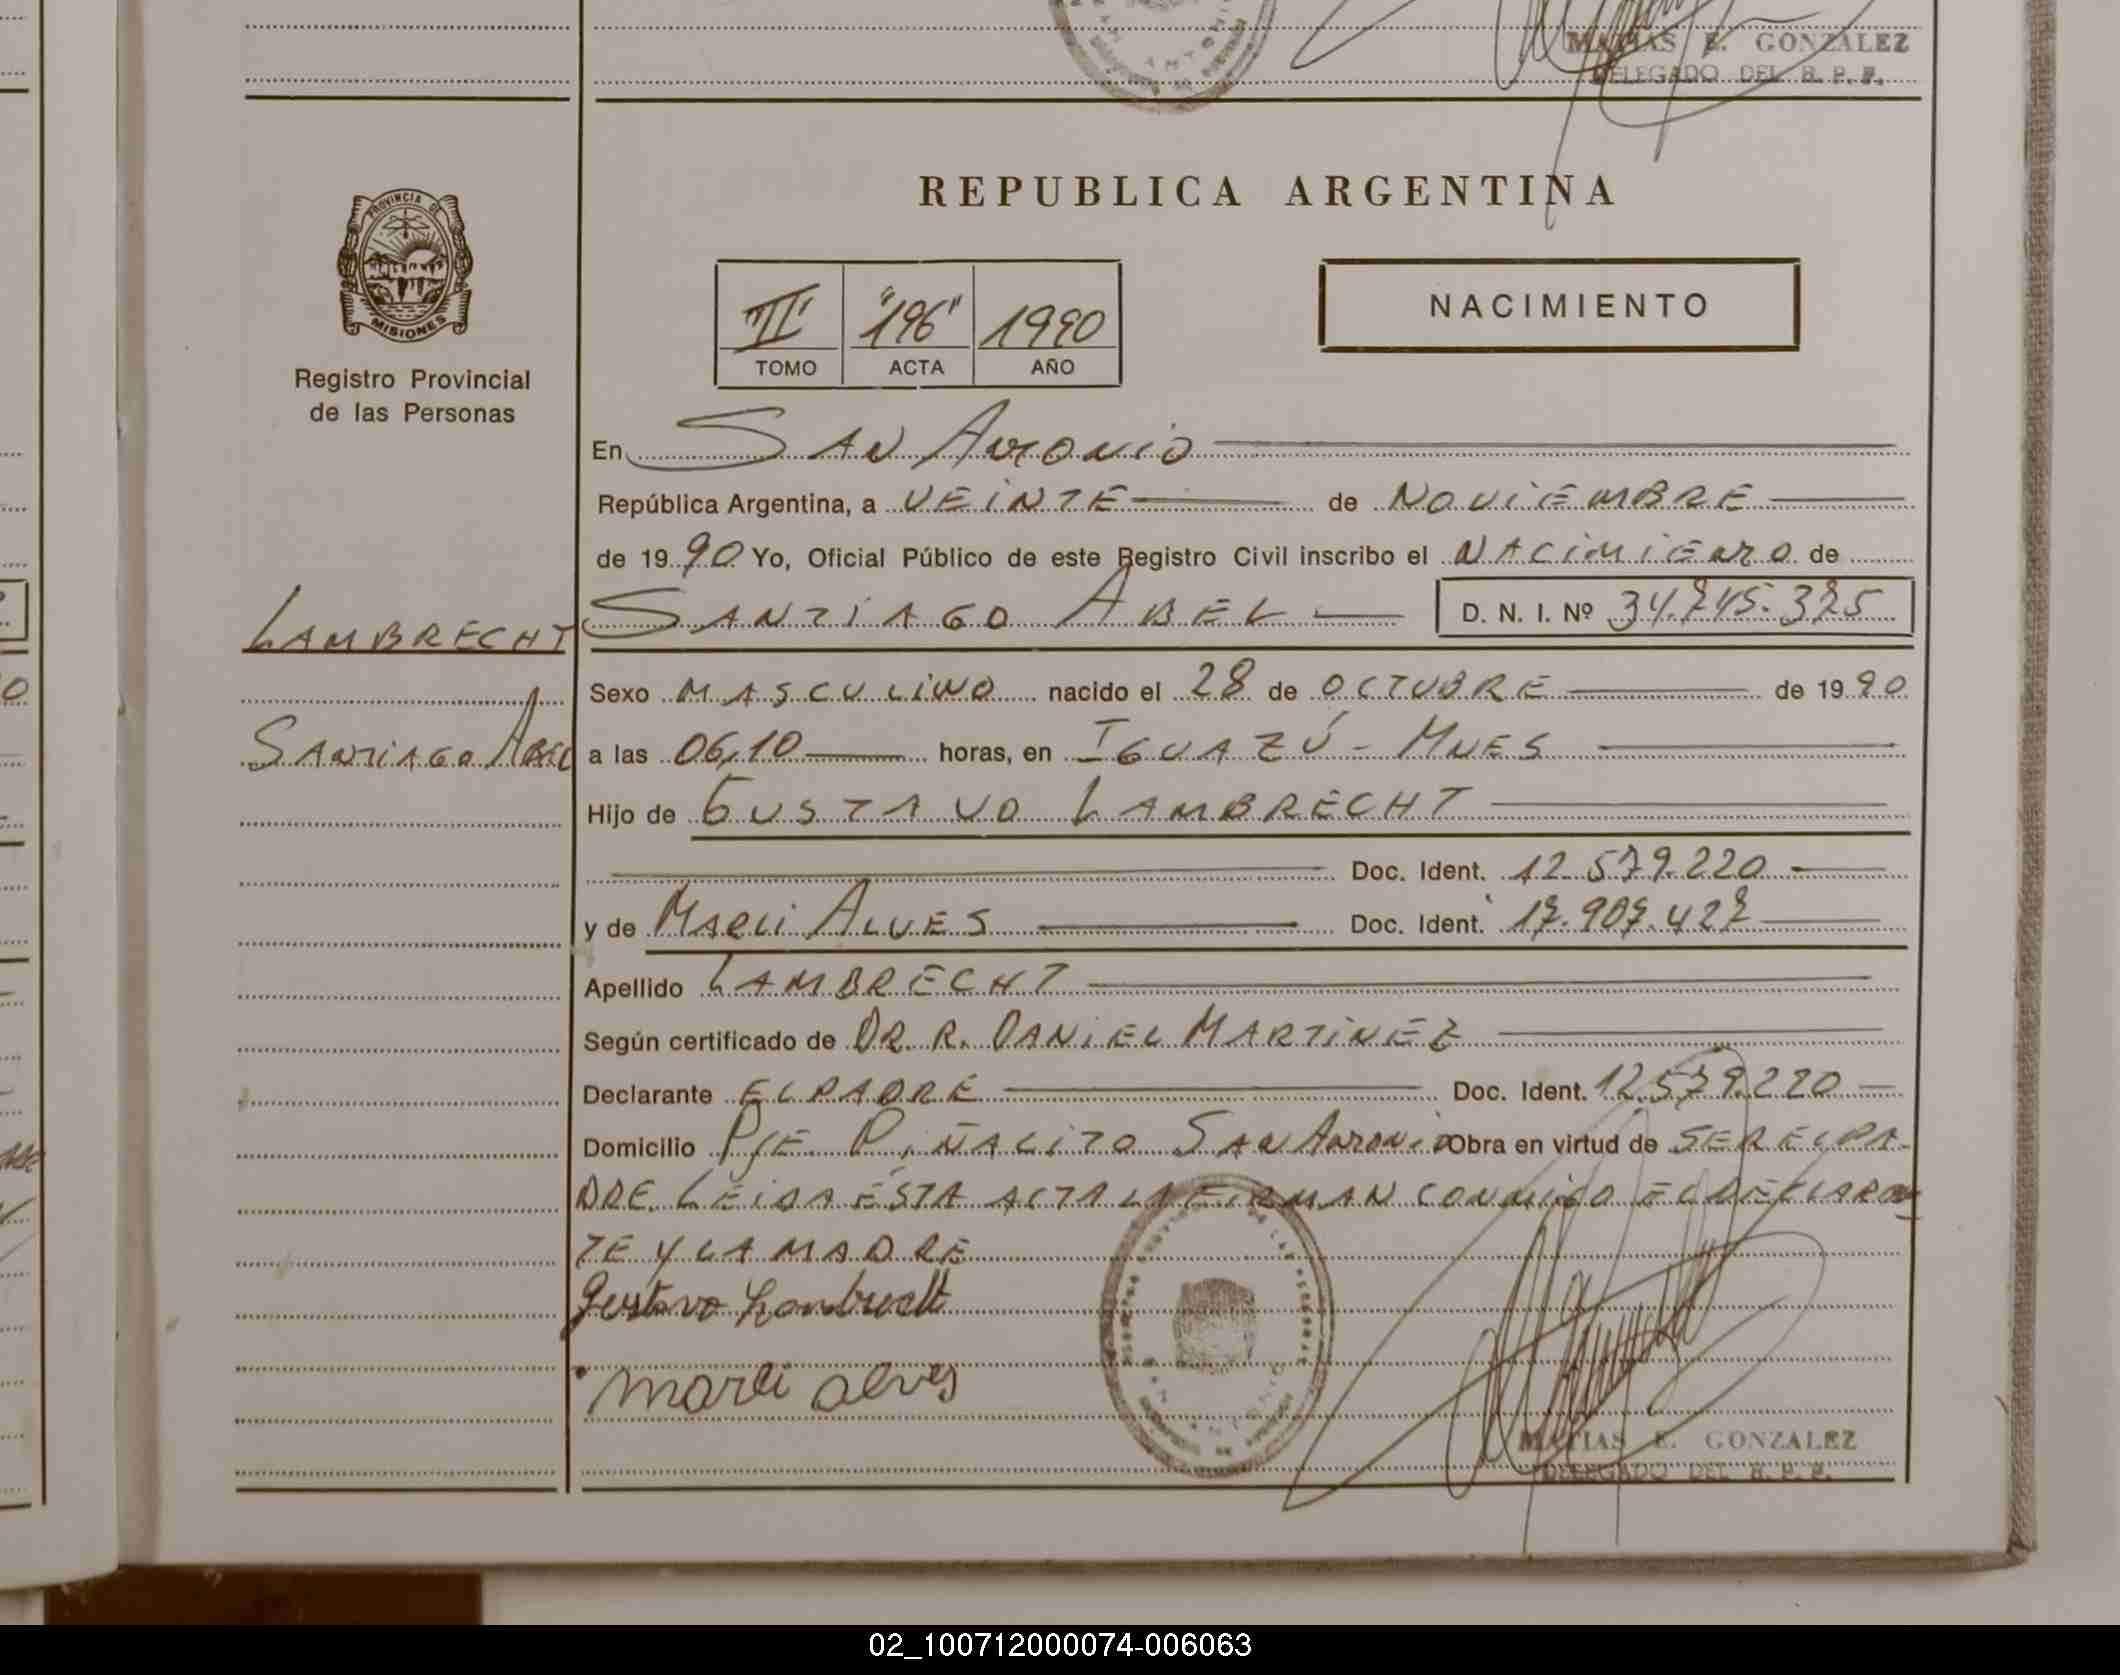 MATIAS E. GONZALEZ
DELEGADO DEL R. P. P.
PROVINCIA DE
MISIONES
Registro Provincial
de las Personas
REPUBLICA ARGENTINA
"II" "196" 1990
TOMO ACTA AÑO
NACIMIENTO
En SAN ANTONIO
República Argentina, a VEINTE de NOVIEMBRE
de 1990 Yo, Oficial Público de este Registro Civil inscribo el NACIMIENTO de
LAMBRECHT SANTIAGO ABEL D. N. I. Nº 34.745.375
Sexo MASCULINO nacido el 28 de OCTUBRE de 1990
SANTIAGO ABEL a las 06,10 horas, en IGUAZÚ - MNES
Hijo de GUSTAVO LAMBRECHT
Doc. Ident. 12.579.220
y de MARLI ALVES Doc. Ident. 17.907.427
Apellido LAMBRECHT
Según certificado de DR. R. DANIEL MARTINEZ
Declarante EL PADRE Doc. Ident. 12.579.220
Domicilio PJE PIÑALITO SAN ANTONIO Obra en virtud de SER EL PA-
DRE. LEIDA ÉSTA ACTA LA FIRMAN CONMIGO EL DECLARAN
TE Y LA MADRE
Gustavo Lambrecht
Marli Alves
MATIAS E. GONZALEZ
DELEGADO DEL R. P. P.
02_100712000074-006063